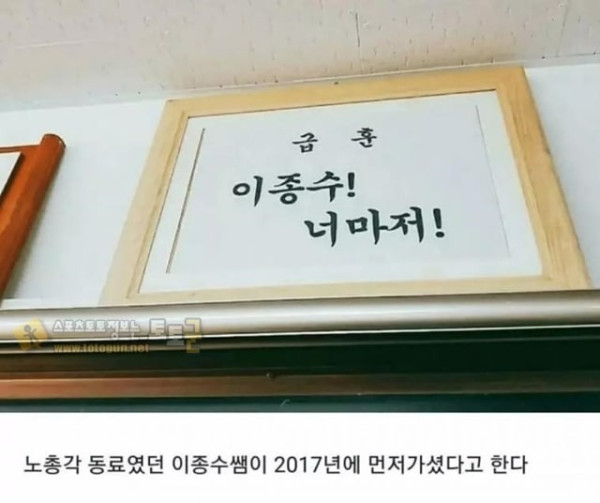 급훈
이종수!
너마저!
스포츠토토정보는 토토군
www.totogun.net
노총각 동료였던 이종수쌤이 2017년에 먼저가셨다고 한다